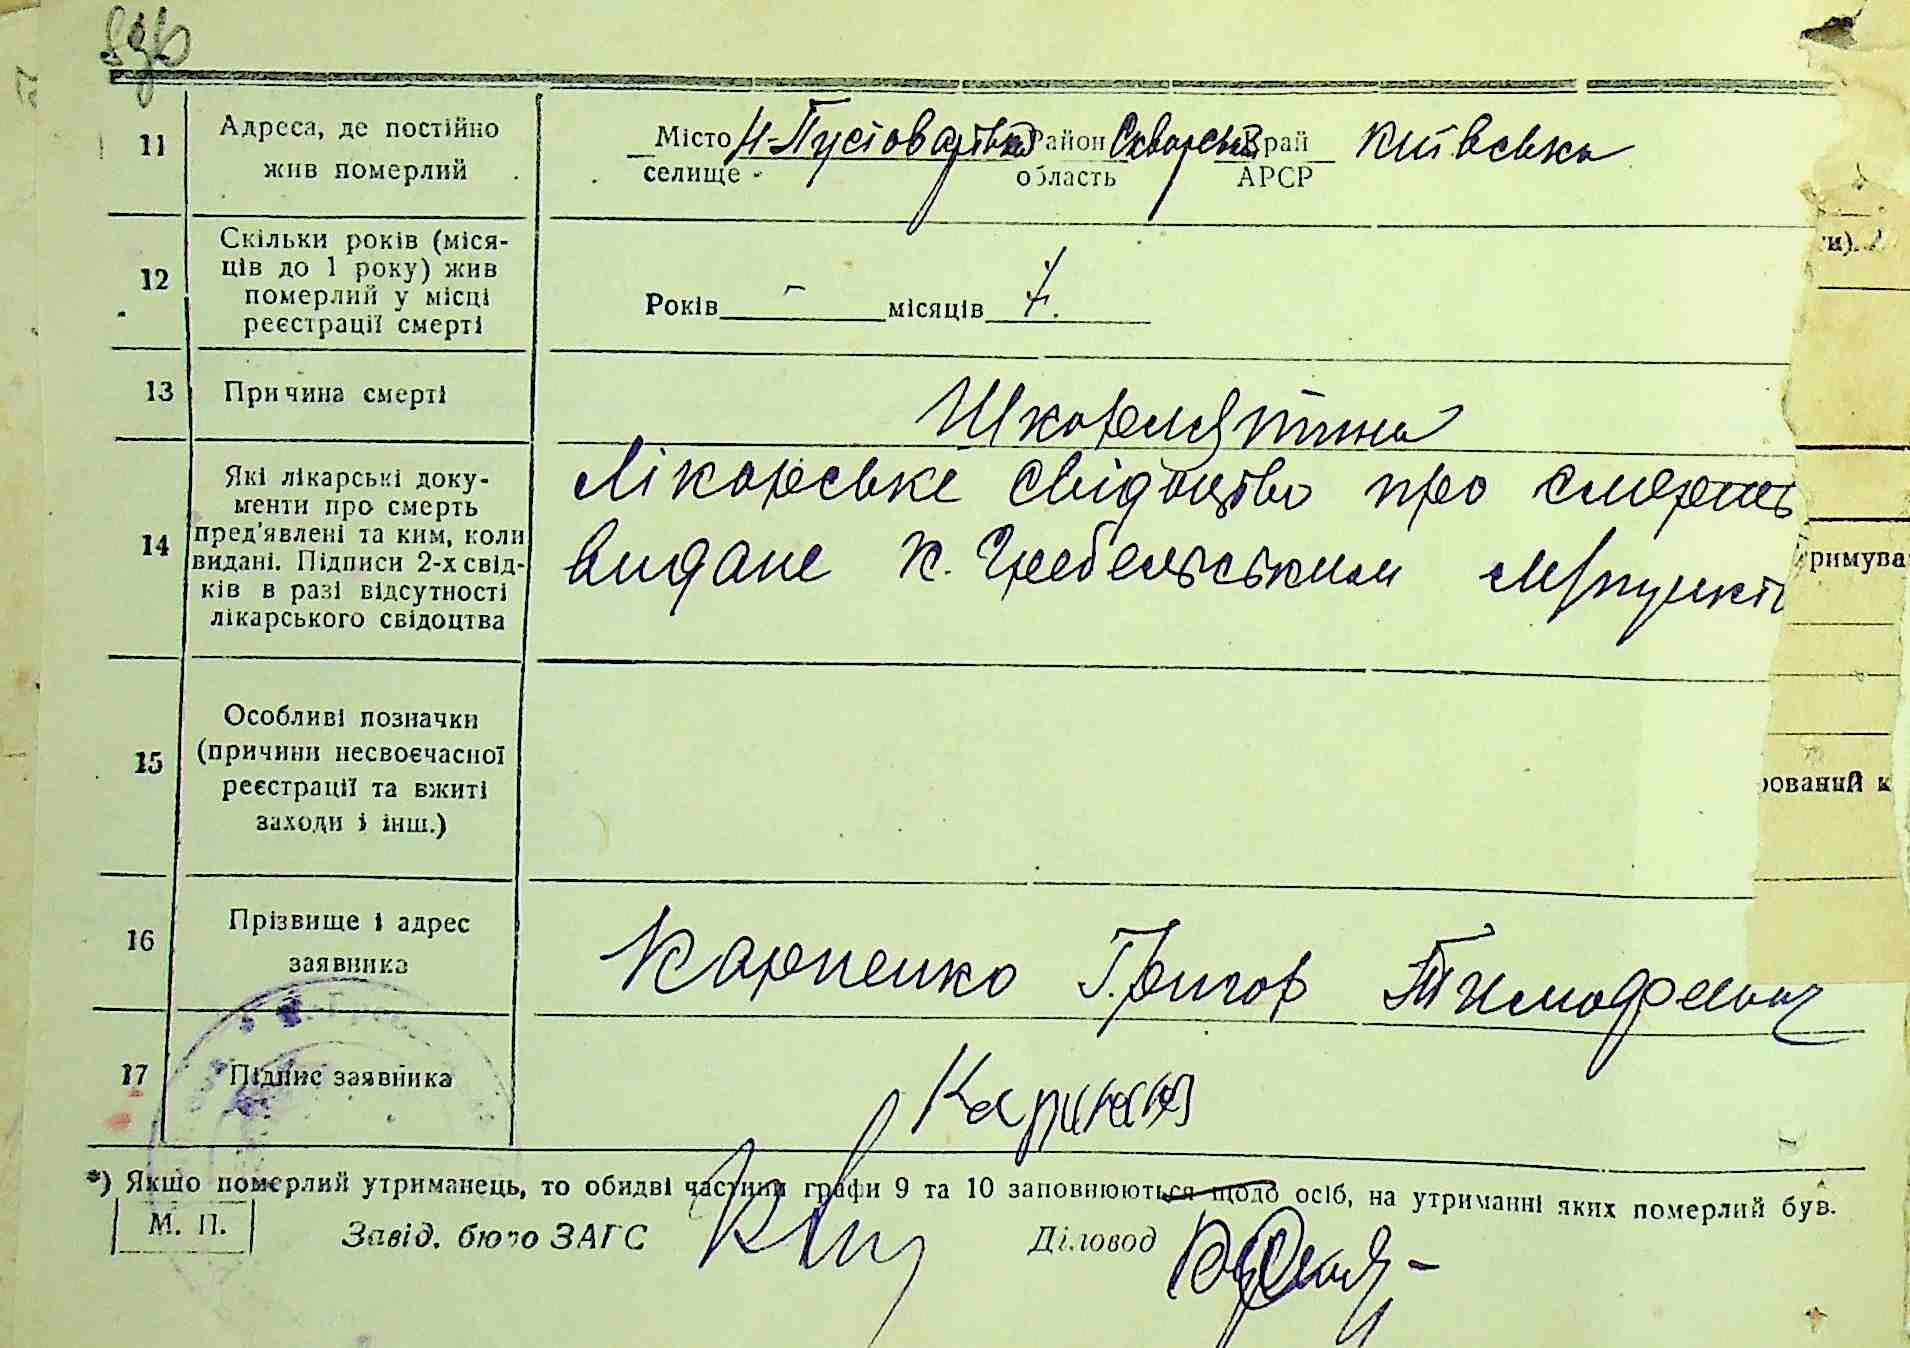 11
Адреса, де постійно
жив померлий
Місто Н-Пустоварівка Район Сквирський Край Київська
селище область АРСР
12
Скільки років (міся-
ців до 1 року) жив
померлий у місці
реєстрації смерті
Років - місяців 7.
13
Причина смерті
Шкорлятина
14
Які лікарські доку-
менти про смерть
пред'явлені та ким, коли
видані. Підписи 2-х свід-
ків в разі відсутності
лікарського свідоцтва
Лікорське свідоцтво про смерть
видане К. Гребельським м/пункт
15
Особливі позначки
(причини несвоєчасної
реєстрації та вжиті
заходи і інш.)
16
Прізвище і адрес
заявника
Карпенко Григор Тимофеевич
17
Підпис заявника
*) Якщо померлий утриманець, то обидві частини графи 9 та 10 заповнюються щодо осіб, на утриманні яких померлий був.
М. П.
Завід. бюро ЗАГС
Діловод
и).
римува
рований к